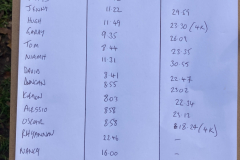 JENNY 11:22 29:59
HUGH 11:49 23:30 (4K)
GERRY 9:35 26:09
TOM 8:44 22:35
NIAMH 11:21 30:55
DAVID 8:41 22:47
DUNCAN 8:55 23:02
KAREN 8:07 22:34
ALESSIO 8:58 23:12
OSCAR 8:58 18:24 (4K)
RHYANNON 22:46 -
NANCY 16:00 -